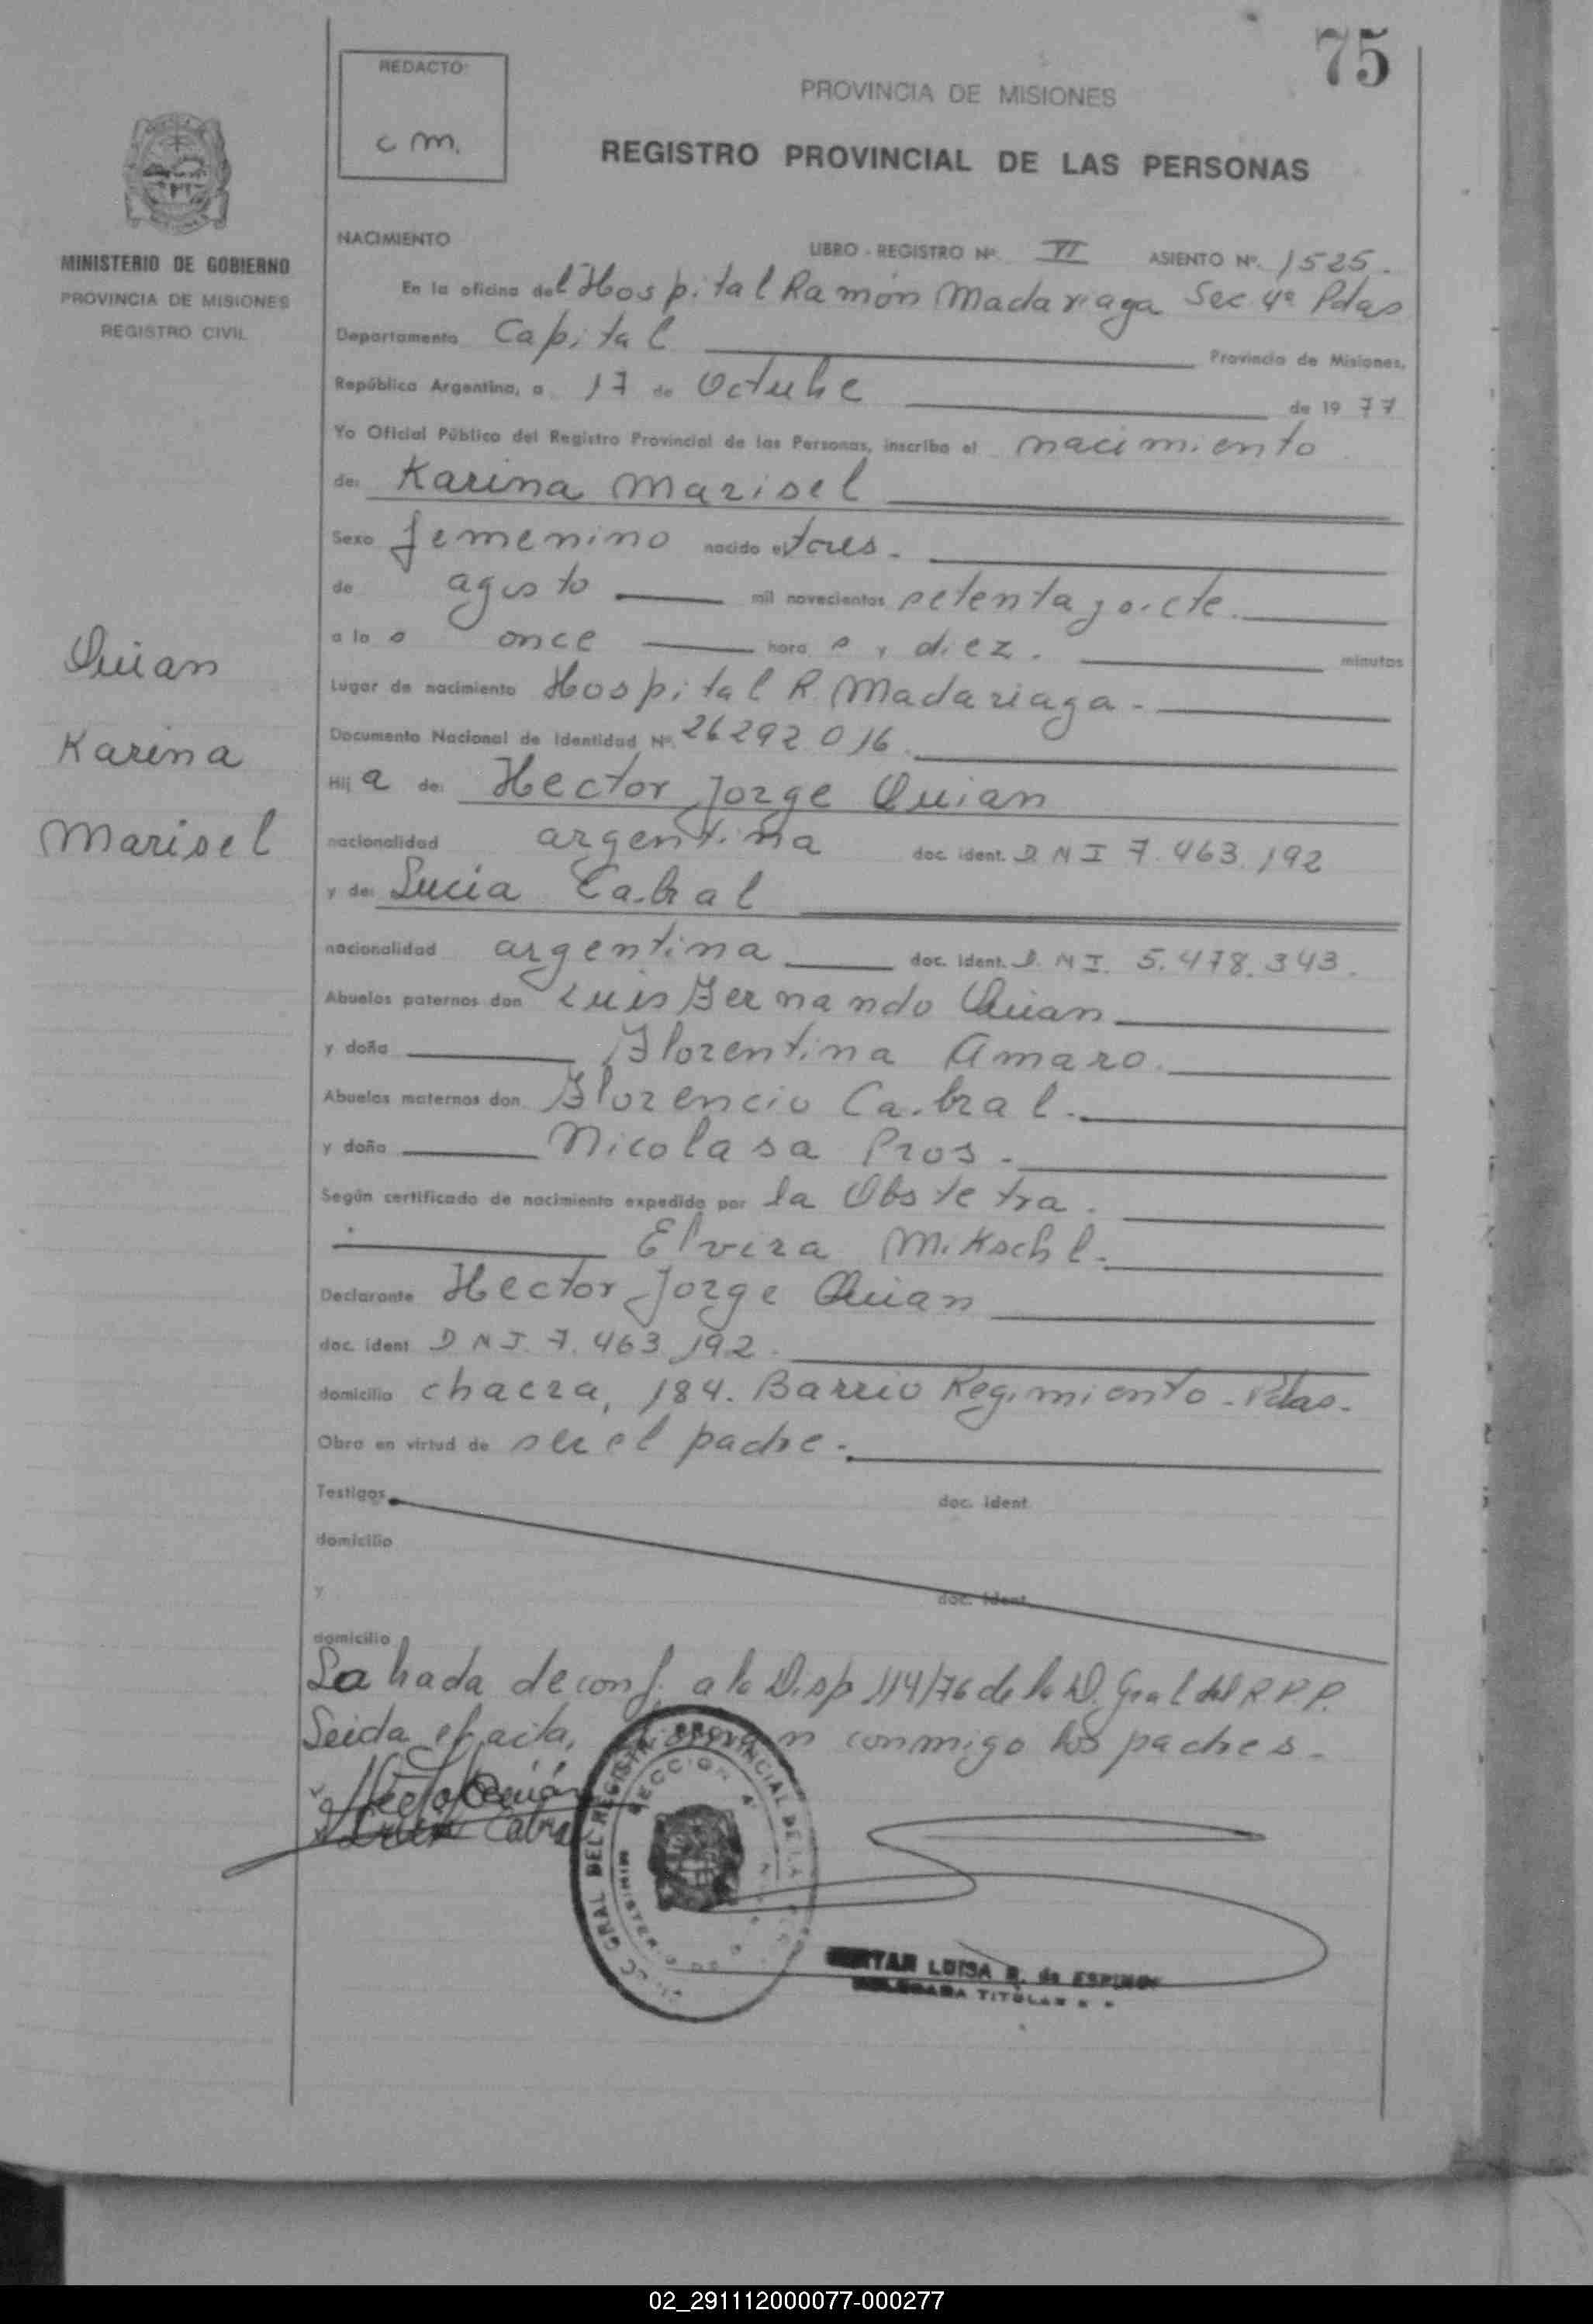 75
REDACTO:
c m.
PROVINCIA DE MISIONES
REGISTRO PROVINCIAL DE LAS PERSONAS
MINISTERIO DE GOBIERNO
PROVINCIA DE MISIONES
REGISTRO CIVIL
NACIMIENTO
LIBRO - REGISTRO Nº VI ASIENTO Nº. 1525.
En la oficina del Hospital Ramón Madariaga Sec 4ª Pdas
Departamento Capital Provincia de Misiones,
República Argentina, a 17 de Octubre de 19 77
Yo Oficial Público del Registro Provincial de las Personas, inscribo el nacimiento
de: Karina Marisel
Sexo femenino nacido el tres.
de agosto mil novecientos setenta y siete.
a la s once hora s y diez. minutos
Lugar de nacimiento Hospital R. Madariaga.
Documento Nacional de Identidad Nº. 26292016.
Hij a de: Hector Jorge Quian
nacionalidad argentina doc. ident. D N I 7.463.192
y de: Lucia Cabral
nacionalidad argentina doc. ident. D. N I. 5.478.343.
Abuelos paternos don Luis Fernando Quian
y doña Florentina Amaro.
Abuelos maternos don Florencio Cabral.
y doña Nicolasa Pros.
Según certificado de nacimiento expedido por la Obstetra.
Elvira Mikschl.
Declarante Hector Jorge Quian
doc. ident D N I. 7.463.192.
domicilio chacra, 184. Barrio Regimiento - Pdas.
Obra en virtud de ser el padre.
Testigos doc. ident
domicilio
y doc. ident
domicilio
Quian
Karina
Marisel
Labrada de conf. a la Disp 114/76 de la D. Gral del R P P.
Leida el acta, conmigo los padres.
Cabral
DIRECC GRAL DEL REGISTRO PROVINCIAL DE LA
SECCION 4
LUISA R. de ESPINO
TITULAR
02_291112000077-000277